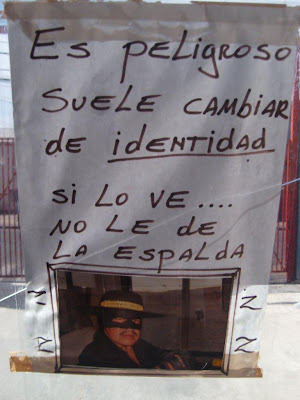 Es peligroso
suele cambiar
de identidad
si lo ve....
no le de
la espalda
Z Z
Z Z